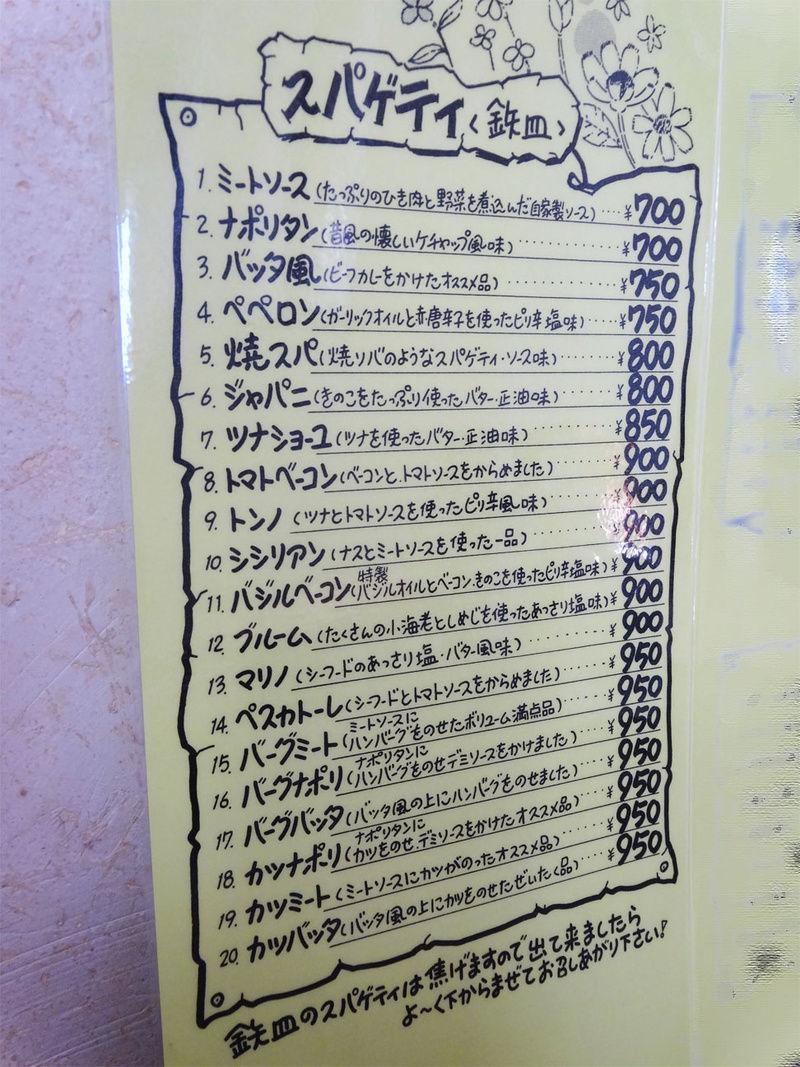 スパゲティ〈鉄皿〉
1. ミートソース(たっぷりのひき肉と野菜を煮込んだ自家製ソース)‥‥¥700
2. ナポリタン(昔風の懐しいケチャップ風味)‥‥‥‥¥700
3. バッタ風(ビーフカレーをかけたオススメ品)‥‥‥‥¥750
4. ペペロン(ガーリックオイルと赤唐辛子を使ったピリ辛塩味)‥¥750
5. 焼スパ(焼ソバのようなスパゲティ・ソース味)‥‥‥¥800
6. ジャパニ(きのこをたっぷり使ったバター・正油味)‥‥‥¥800
7. ツナショーユ(ツナを使ったバター・正油味)‥‥‥‥¥850
8. トマトベーコン(ベーコンと、トマトソースをからめました)‥‥‥¥900
9. トンノ(ツナとトマトソースを使ったピリ辛風味)‥‥‥¥900
10. シシリアン(ナスとミートソースを使った一品)‥‥‥¥900
11. バジルベーコン(特製バジルオイルとベーコン、きのこを使ったピリ辛塩味)¥900
12. ブルーム(たくさんの小海老としめじを使ったあっさり塩味)¥900
13. マリノ(シーフードのあっさり塩・バター風味)‥‥‥¥900
14. ペスカトーレ(シーフードとトマトソースをからめました)‥‥‥¥950
15. バーグミート(ミートソースにハンバーグをのせたボリューム満点品)‥‥¥950
16. バーグナポリ(ナポリタンにハンバーグをのせデミソースをかけました)‥‥¥950
17. バーグバッタ(バッタ風の上にハンバーグをのせました)‥‥‥¥950
18. カツナポリ(ナポリタンにカツをのせ、デミソースをかけたオススメ品)‥‥¥950
19. カツミート(ミートソースにカツがのったオススメ品)‥‥‥¥950
20. カツバッタ(バッタ風の上にカツをのせたぜいたく品)‥‥‥¥950
鉄皿のスパゲティは焦げますので出て来ましたら
よ～く下からまぜてお召しあがり下さい!